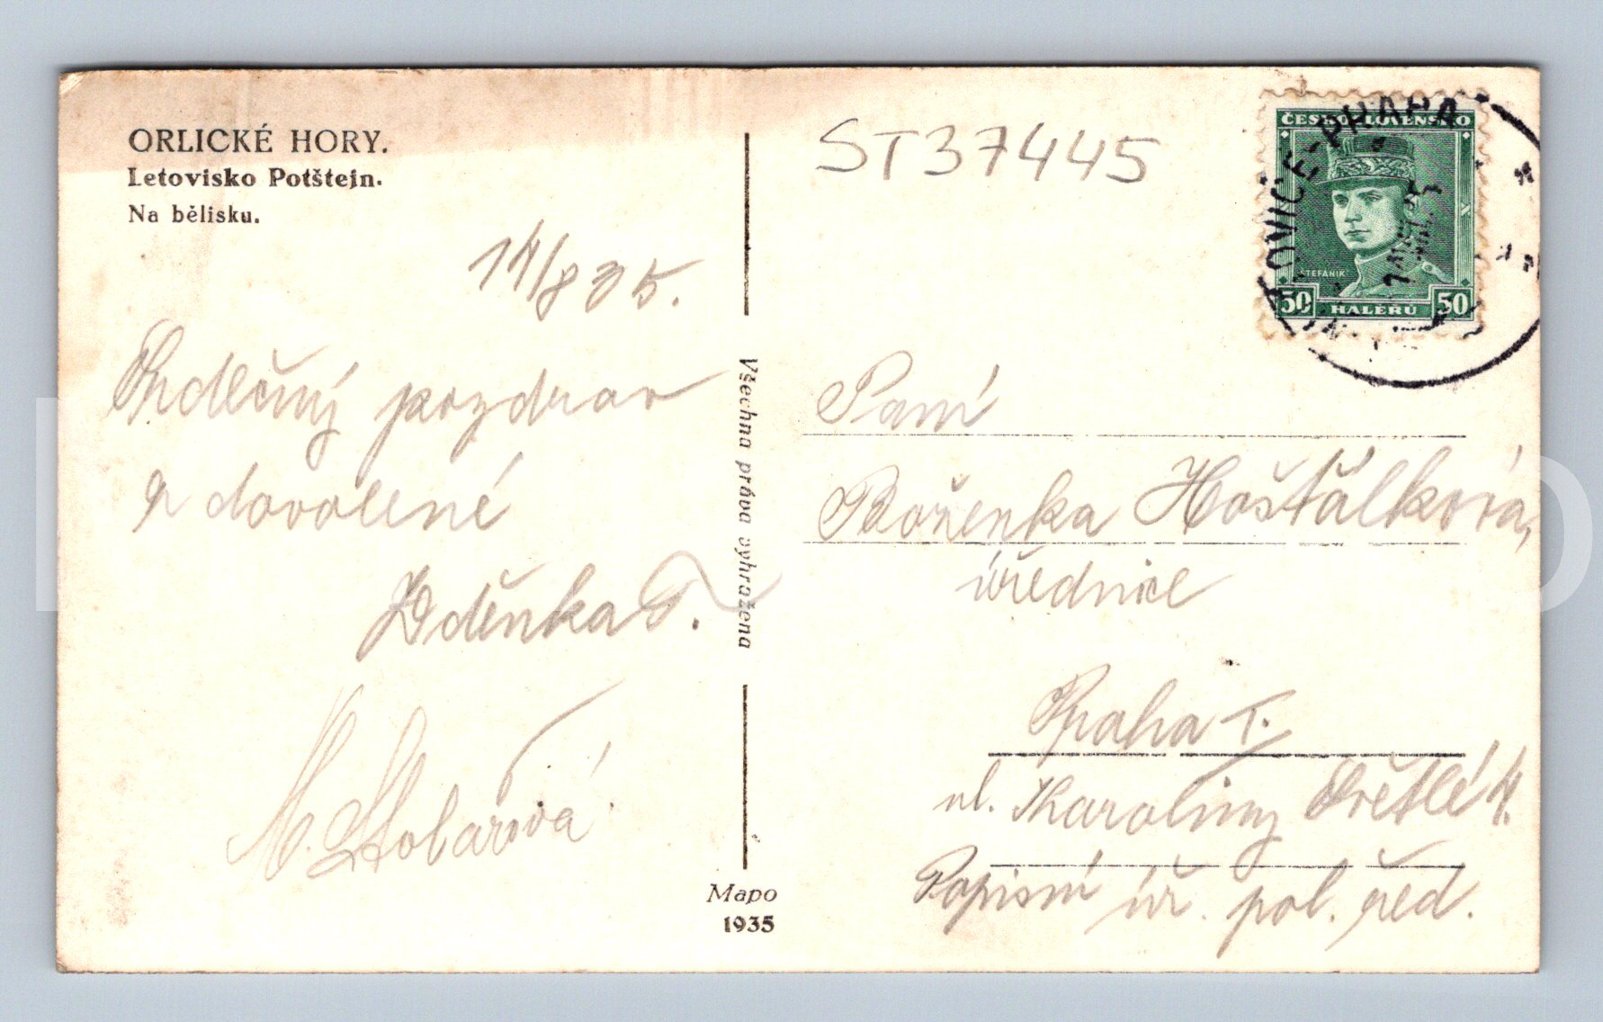 ORLICKÉ HORY.
Letovisko Potštejn.
Na bělisku.
ST37445
ČESKOSLOVENSKO
ŠTEFÁNIK
50 HALÉŘŮ 50
OVICE-PRAHA
14/8 35.
Srdečný pozdrav
z dovolené
Zděnka
M. Stolařová
Všechna práva vyhražena
Mapo
1935
Paní
Boženka Hošťálková,
úřednice
Praha I.
ul. Karoliny Světlé 4.
Popisní úř. pol. řed.